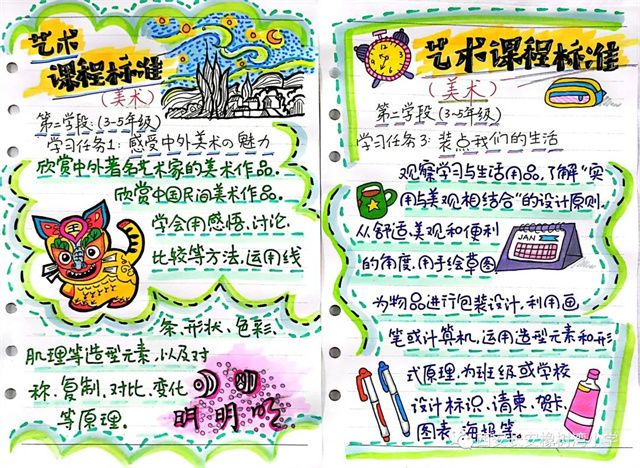 艺术
课程标准
(美术)
第二学段:(3-5年级)
学习任务1:感受中外美术の魅力
欣赏中外著名艺术家的美术作品.
欣赏中国民间美术作品.
学会用感悟、讨论、
比较等方法,运用线
条、形状、色彩、
肌理等造型元素,以及对
称、复制、对比、变化
等原理.
明明
艺术课程标准
(美术)
第二学段(3-5年级)
学习任务3:装点我们的生活
观察学习与生活用品,了解“实
用与美观相结合”的设计原则.
从舒适、美观和便利
JAN
的角度,用手绘草图
为物品进行包装设计,利用画
笔或计算机,运用造型元素和形
式原理,为班级或学校
设计标识、请柬、贺卡、
图表、海报等.